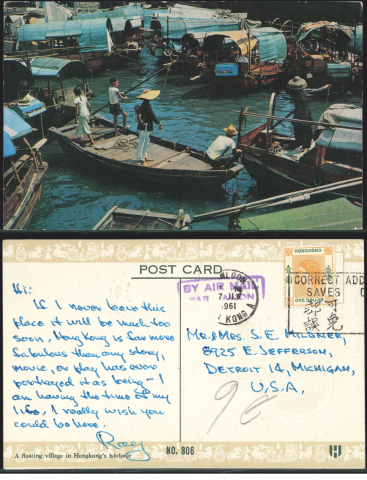 POST CARD
Hi:
If I never leave this
place it will be much too
soon, Hong Kong is far more
fabulous than any story,
movie, or play has ever
portrayed it as being - I
am having the time of my
life, I really wish you
could be here.
Roy
A floating village in Hongkong's harbour
NO. 806
BY AIR MAIL
PAR AVION
7 JUL
1961
KONG
HONGKONG
ONE DOLLAR
CORRECT ADD
SAVES
可免
誤
Mr. & Mrs. S. E. Mildner,
8925 E. Jefferson,
Detroit 14, Michigan,
U.S.A.
H